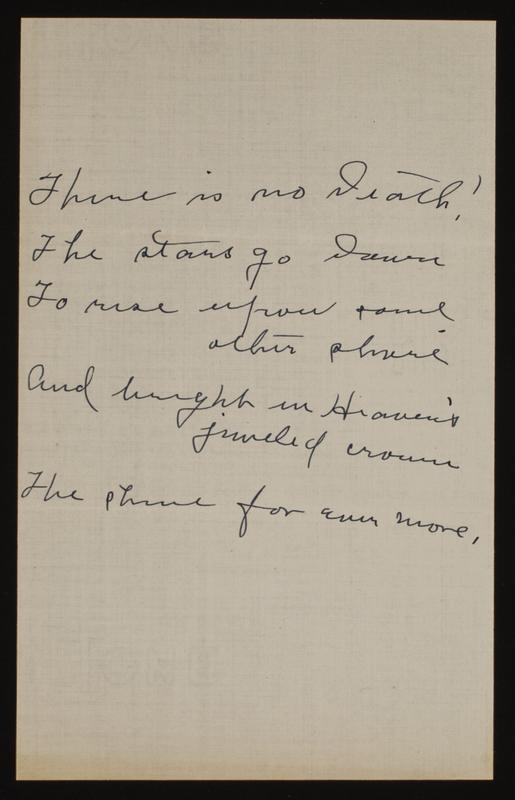 There is no Death!
The stars go down
To rise upon some
other shore
And bright in Heaven's
jeweled crown
The shine for ever more.